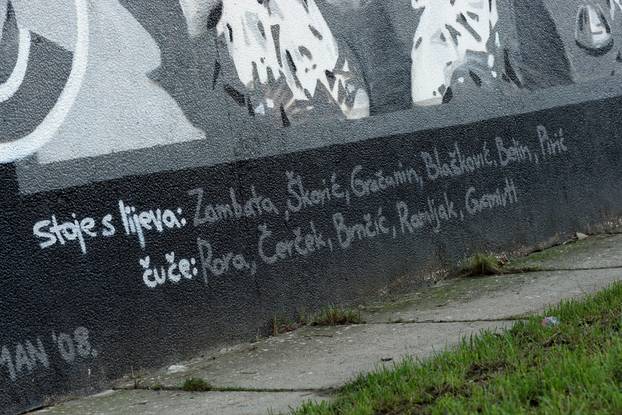 Stoje s lijeva: Zambata, Škorić, Gračanin, Blašković, Belin, Pirić
čuče: Rora, Čerček, Brnčić, Ramljak, Gusmitl
MAN '08.